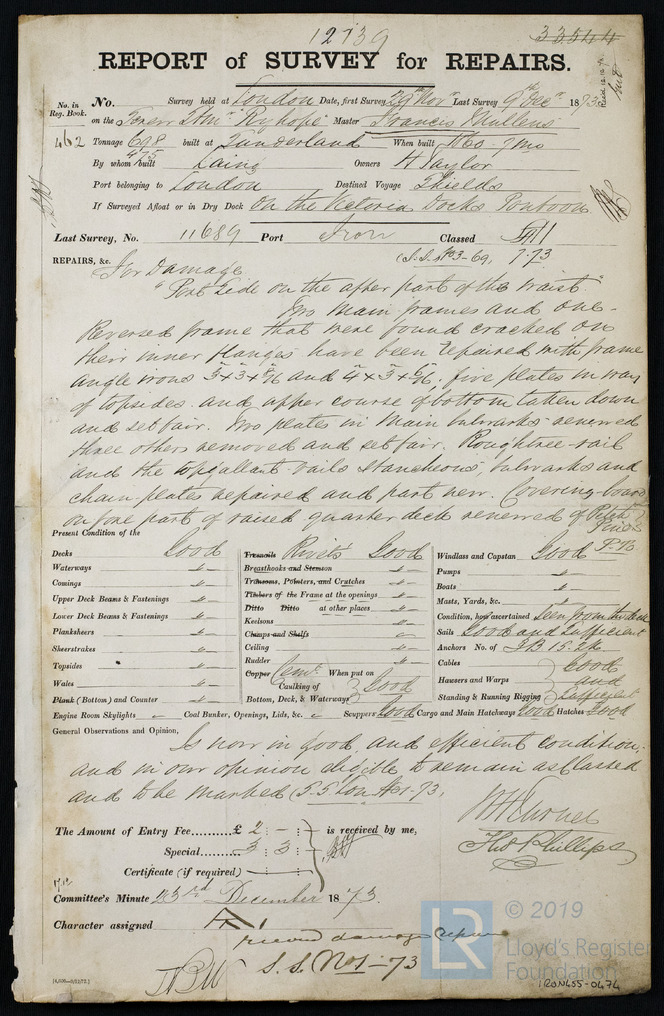 12739
33544
REPORT of SURVEY for REPAIRS.
No. in Reg. Book.
No. Survey held at London Date, first Survey 29th Nov Last Survey 9th Dec 1873
on the Screw Str "Ryhope" Master Francis Mullens
462 Tonnage 698 built at Sunderland When built 1860 - 7 Mo
475
By whom built Laing Owners H Taylor
Port belonging to London Destined Voyage Shields
If Surveyed Afloat or in Dry Dock On the Victoria Docks Pontoon
Last Survey, No. 11689 Port Iron Classed
REPAIRS, &c. (S.S. No 3-69, 7.73
For Damage
"Port Side on the after part of the waist."
Two main frames and one
Reversed frame that were found cracked on
their inner flanges have been repaired with frame
angle irons 3 x 3 x 6/16 and 4 x 3 x 6/16, five plates in way
of topsides and upper course of bottom taken down
and set fair. Two plates in main bulwarks renewed
three others removed and set fair. Roughtree-rail
and the topgallant rails stancheons, bulwarks and
chain-plates repaired and part new. Covering-board
on fore part of raised quarter deck renewed of Pitch Pine
P.B
Present Condition of the
Decks Good
Waterways "
Comings "
Upper Deck Beams & Fastenings "
Lower Deck Beams & Fastenings "
Planksheers "
Sheerstrakes "
Topsides "
Wales "
Plank (Bottom) and Counter "
Treenails Rivets Good
Breasthooks and Stemson "
Transoms, Pointers, and Crutches "
Timbers of the Frame at the openings "
Ditto Ditto at other places "
Keelsons "
Clamps and Shelfs
Ceiling "
Rudder "
Copper Cemt. When put on
Caulking of Bottom, Deck, & Waterways Good
Windlass and Capstan Good
Pumps "
Boats "
Masts, Yards, &c. "
Condition, how ascertained Seen from the deck
Sails Good and Sufficient
Anchors No. of 3B 1S. 2K
Cables
Hawsers and Warps
Standing & Running Rigging
Good and Sufficient
Engine Room Skylights Coal Bunker, Openings, Lids, &c. Scuppers Good Cargo and Main Hatchways Good Hatches Good
General Observations and Opinion,
Is now in good and efficient condition,
and in our opinion eligible to remain as Classed
and to be marked (S.S Lon No 1-73,
The Amount of Entry Fee.........£ 2 : - : is received by me,
Special.......... 3 : 3 :
Certificate (if required)
W H Turner
Thos Phillips
Committee's Minute 23rd December 1873.
Character assigned A1
record damage repairs
S.S. No 1-73
[4,000-9/12/72.]
LR
© 2019
Lloyd's Register
Foundation
IRON455-0474